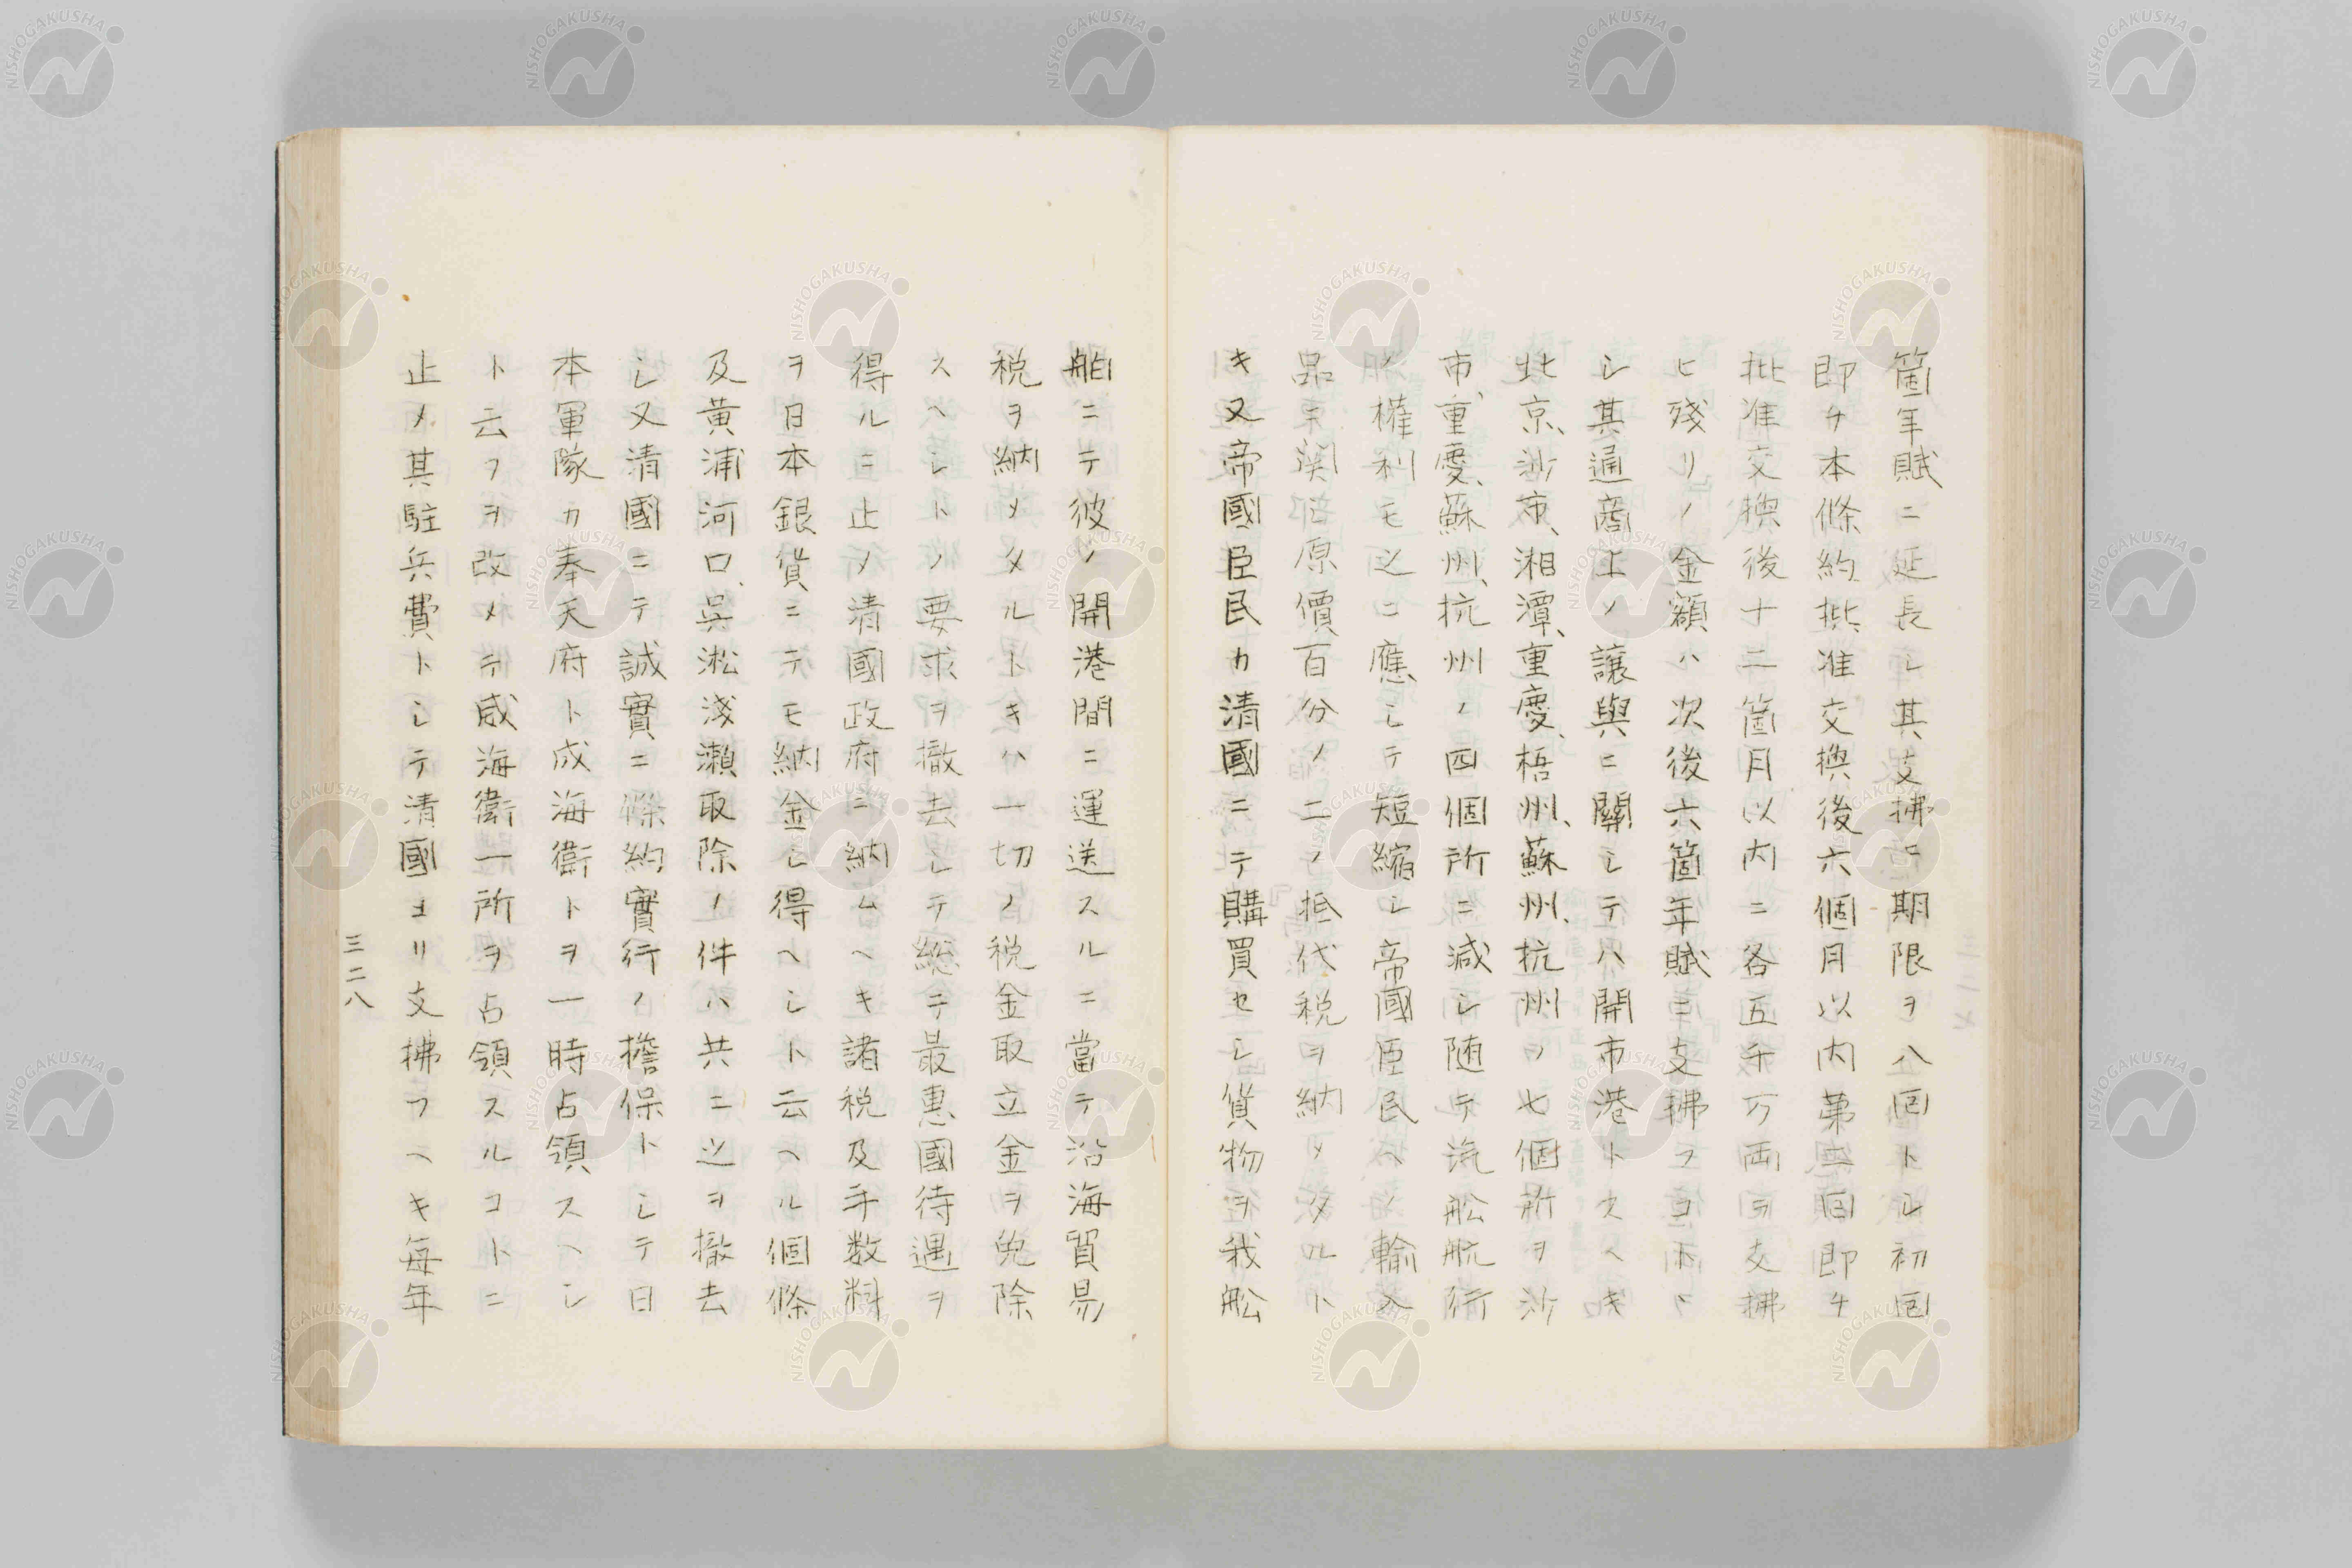 箇年賦ニ延長シ其支拂ヒ期限ヲ八回トシ初回
即チ本條約批准交換後六個月以内第二回即チ
批准交換後十二箇月以内ニ各五千万両ヲ支拂
ヒ殘リノ金額ハ次後六箇年賦ニ支拂フコトヽ
シ其通商上ノ讓與ニ關シテハ開市港トスヘキ
北京、沙市、湘潭、重慶、梧州、蘇州、杭州ノ七個所ヲ沙
市、重慶、蘇州、杭州ノ四個所ニ減シ随テ汽舩航行
ノ權利モ之ニ應シテ短縮シ帝國臣民ヘノ輸入
品ニ関シ原價百分ノ二ノ抵代税ヲ納メタルト
キ又帝國臣民カ清國ニテ購買セシ貨物ヲ我舩
舶ニテ彼ノ開港間ニ運送スルニ當テ沿海貿易
税ヲ納メタルトキハ一切ノ税金取立金ヲ免除
スヘシトノ要求ヲ撤去シテ総テ最惠國待遇ヲ
得ルニ止メ清國政府ニ納ムヘキ諸税及手数料
ヲ日本銀貨ニテモ納金シ得ヘシト云ヘル個條
及黄浦河口、呉淞淺瀬取除ノ件ハ共ニ之ヲ撤去
シ又清國ニテ誠實ニ條約實行ノ擔保トシテ日
本軍隊カ奉天府ト成海衛トヲ一時占領スヘシ
ト云フヲ改メテ威海衛一所ヲ占領スルコトニ
止メ其駐兵費トシテ清國ヨリ支拂フヘキ毎年
三二八
NISHOGAKUSHA